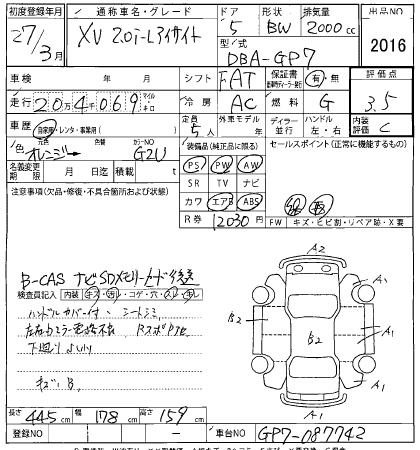 初度登録年月 通称車名・グレード ドア 形状 排気量 出品NO
27/3月 XV 2.0i-Lアイサイト 5 BW 2000cc
型式 2016
DBA-GP7
車検 年 月 シフト FAT 保証書 有 無 評価点
走行 20万4千069 マイル キロ 冷房 AC 燃料 G 3.5
車歴 自家用・レンタ・事業用( ) 定員 外車モデル ディーラー ハンドル 内装評価
5人 年 並行 左・右 C
色 元色 オレンジ 色替 カラーNO G2U 装備品(純正品に限る) セールスポイント(正常に機能するもの)
PS PW AW
名義変更期限 月 日迄 積載 t SR TV ナビ
注意事項(欠品・修復・不具合箇所および状態) カワ エアB ABS
R券 12030円 FW キズ・ヒビ割・リペア跡・X要
B-CAS ナビSDメモリーカード後送
検査員記入 内装 キズ・汚レ・コゲ・穴・スレ・キレ
ハンドルカバー付、シートシミ
左右ドアミラー電格不良 RスポPTE
下廻りよりサビ
キズB
A2
A1
B2 B2 A1
A1
A1
長さ 445cm 幅 178cm 高さ 159cm
登録NO ー 車台NO GP7-087742